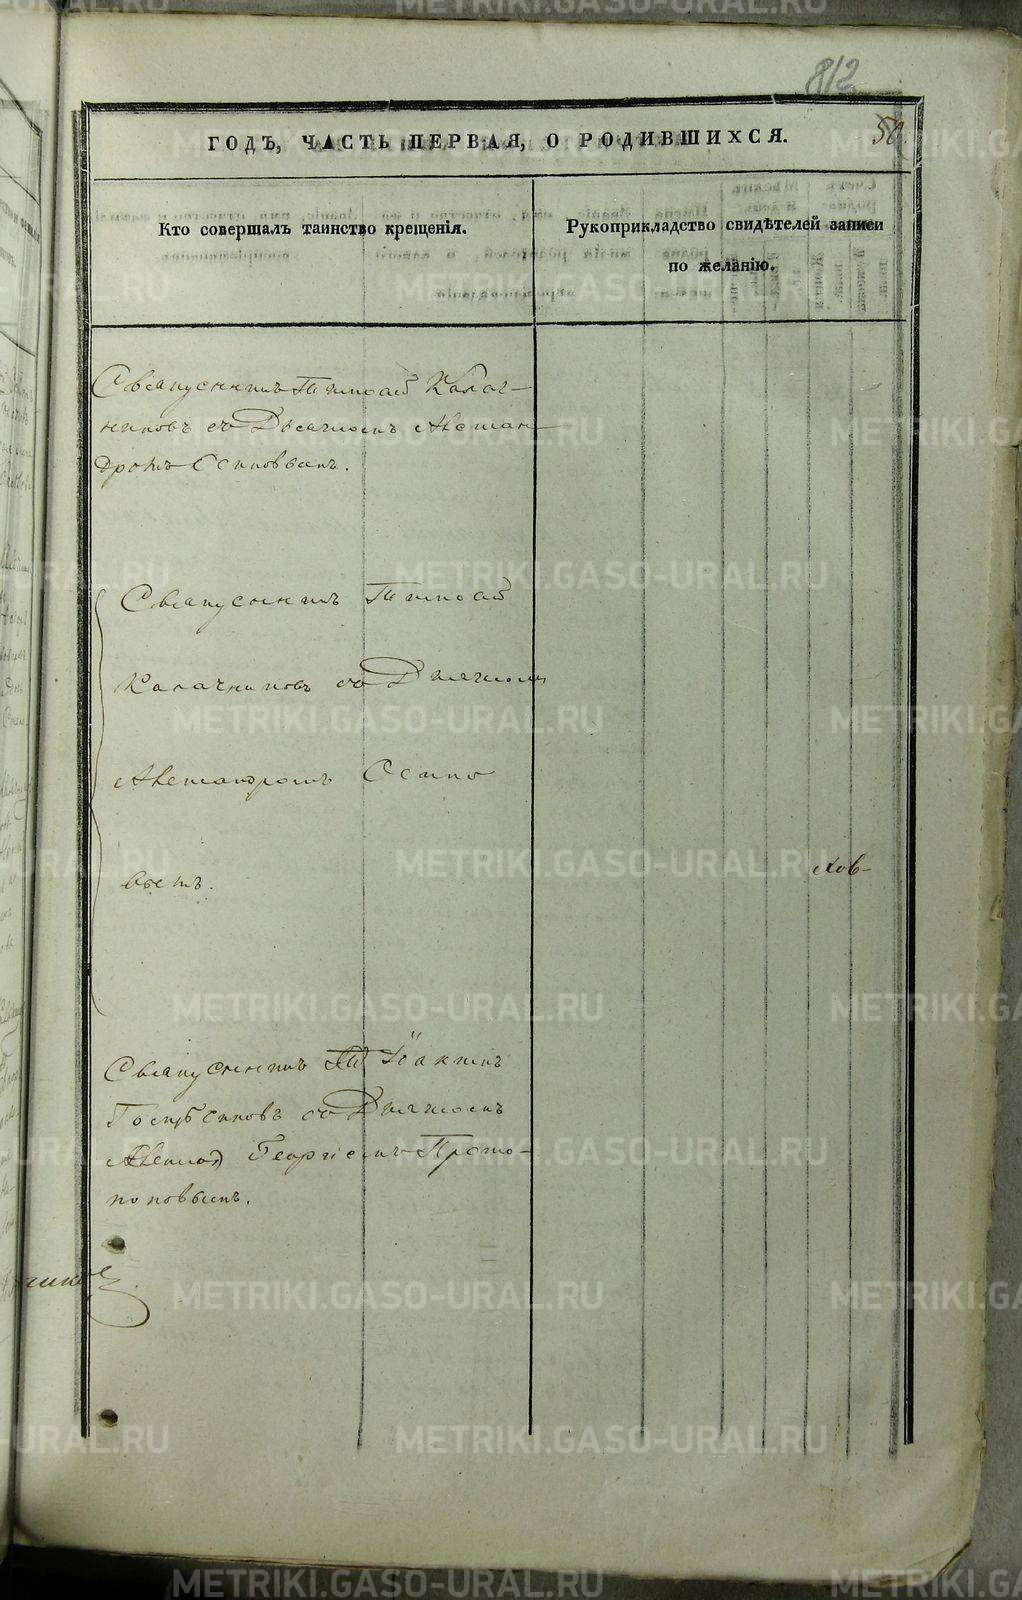 812
ГОДЪ, ЧАСТЬ ПЕРВАЯ, О РОДИВШИХСЯ.
50.
Кто совершалъ таинство крещенія.
Рукоприкладство свидѣтелей записи
по желанію.
Священникъ Тимофей Калач-
никовъ съ Дьячкомъ Алексан-
дромъ Осиповымъ.
Священникъ Тимофей
Калачниковъ съ Дьячкомъ
Александромъ Осипо
вымъ.
Священникъ Іоакимъ
съ Дьячкомъ
Георгіемъ Прото-
поповымъ.
METRIKI.GASO-URAL.RU